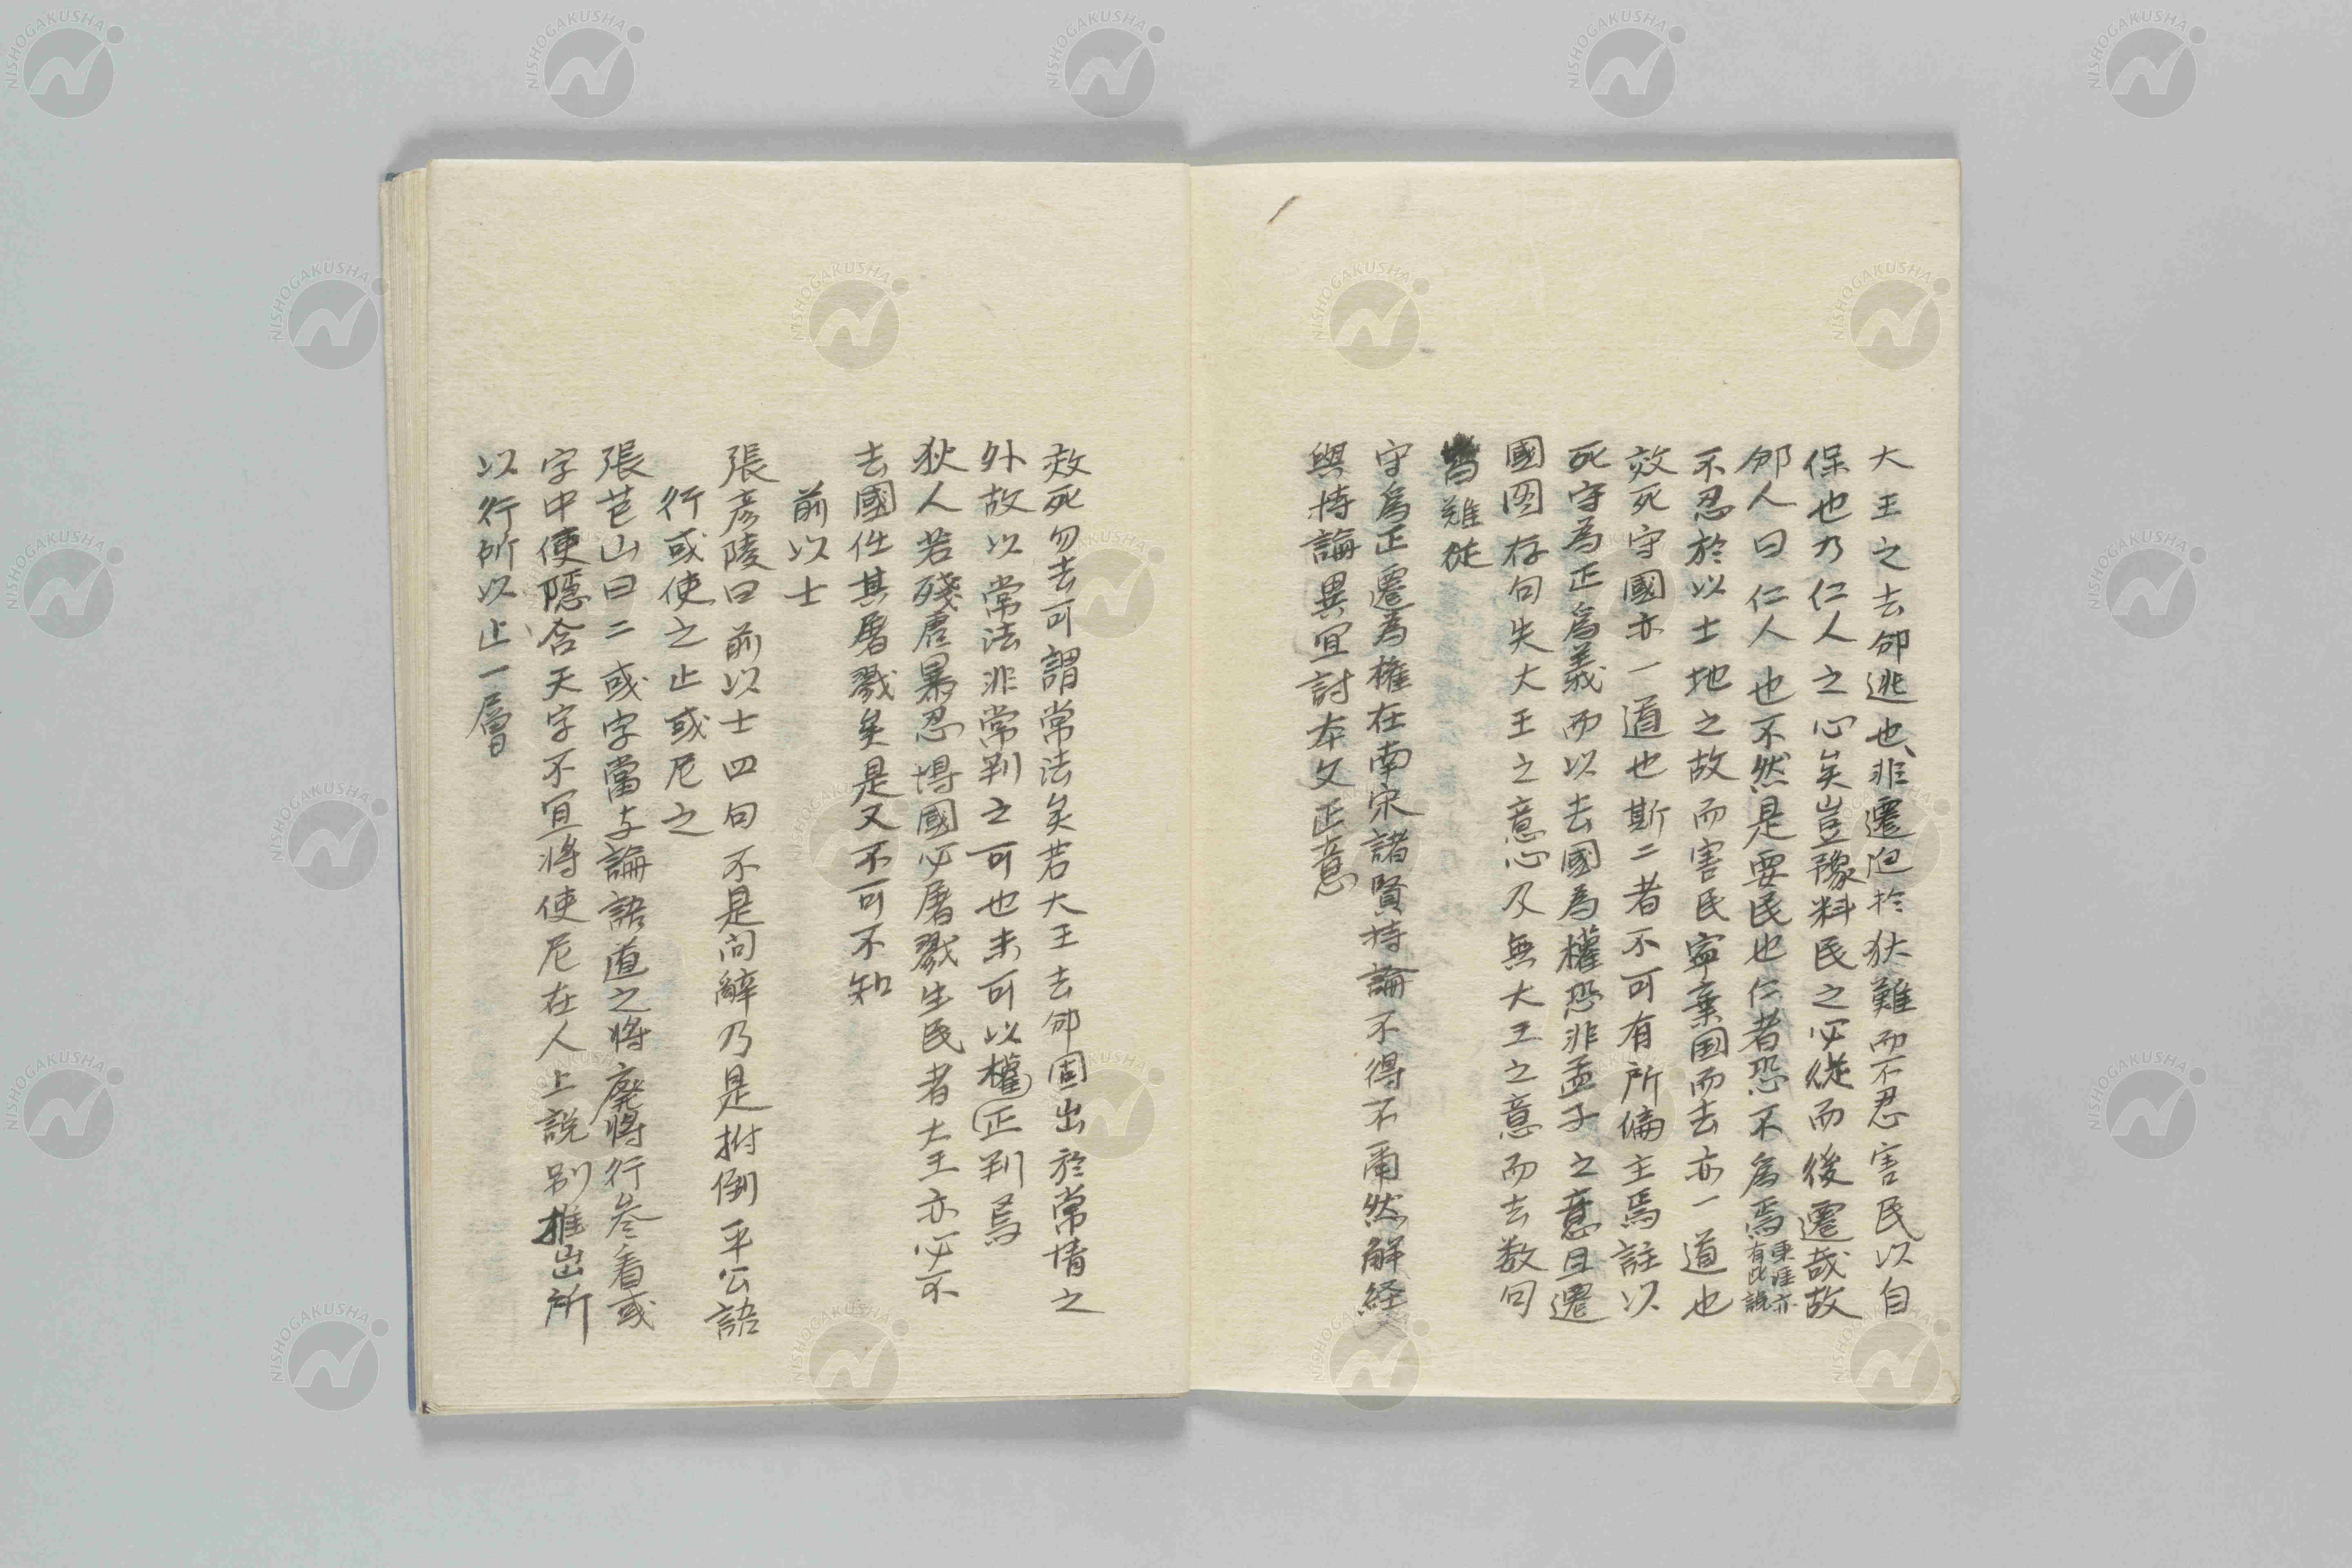 大王之去邠逃也、非遷也於狄難而不忍害民以自
保也乃仁人之心矣豈豫料民之必從而後遷哉故
邠人曰仁人也不然是要民也仁者恐不為焉東涯亦有此說
不忍於以土地之故而害民寧棄国而去亦一道也
效死守國亦一道也斯二者不可有所偏主焉註以
死守為正為義而以去國為權恐非孟子之意且遷
國図存句失大王之意心及無大王之意而去数句
皆難從
守為正遷為權在南宋諸賢持論不得不爾然解経
與持論異宜討本文正意
效死勿去可謂常法矣若大王去邠固出於常情之
外故以常法非常判之可也未可以權正判焉
狄人若殘虐暴忍得國必屠戮生民者大王亦必不
去國任其屠戮矣是又不可不知
前以士
張彦陵曰前以士四句不是問辭乃是拊倒平公語
行或使之止或尼之
張芑山曰二或字當与論語道之將廢將行参看或
字中便隱含天字不宜將使尼在人上說別推出所
以行所以止一層
NISHOGAKUSHA